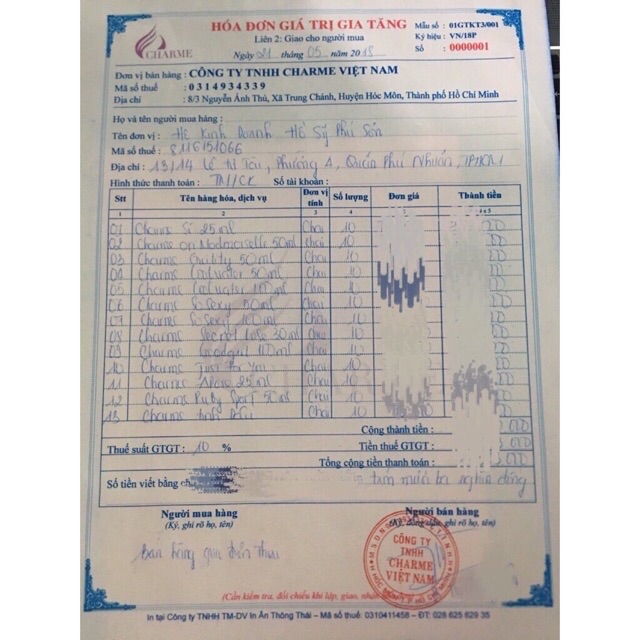 CHARME
HÓA ĐƠN GIÁ TRỊ GIA TĂNG
Liên 2: Giao cho người mua
Ngày 21 tháng 05 năm 2018
Mẫu số : 01GTKT3/001
Ký hiệu : VN/18P
Số : 0000001
Đơn vị bán hàng : CÔNG TY TNHH CHARME VIỆT NAM
Mã số thuế : 0314934339
Địa chỉ : 8/3 Nguyễn Ánh Thủ, Xã Trung Chánh, Huyện Hóc Môn, Thành phố Hồ Chí Minh
Họ và tên người mua hàng :
Tên đơn vị : Hộ Kinh Doanh Hồ Sỹ Phú Sơn
Mã số thuế : 8116151066
Địa chỉ : 13/14 Lê Tự Tài, Phường 4, Quận Phú Nhuận, TPHCM
Hình thức thanh toán : TM/CK Số tài khoản :
Stt Tên hàng hóa, dịch vụ Đơn vị tính Số lượng Đơn giá Thành tiền
1 2 3 4
01 Charme 25ml Chai 10
02 Charme 50ml Chai 10
03 Charme 50ml Chai 10
04 Charme 50ml Chai 10
05 Charme 100ml Chai 10
06 Charme So Sexy 50ml Chai 10
07 Charme So Sexy 100ml Chai 10
08 Charme Secret 30ml Chai 10
09 Charme Goodgirl 100ml Chai 10
10 Charme Just for You Chai 10
11 Charme 25ml Chai 10
12 Charme Ruby 50ml Chai 10
13 Charme Chai 10
Cộng thành tiền :
Thuế suất GTGT : 10 % Tiền thuế GTGT :
Tổng cộng tiền thanh toán :
Số tiền viết bằng tám mươi ba nghìn đồng
Người mua hàng Người bán hàng
(Ký, ghi rõ họ, tên) ghi rõ họ, tên)
Bán hàng qua điện thoại
CÔNG TY
TNHH
CHARME
VIỆT NAM
(Cần kiểm tra, đối chiếu khi lập, giao, nhận
In tại Công Ty TNHH TM-DV In Ấn Thông Thái – Mã số thuế: 0310411458 – ĐT: 028 625 629 35